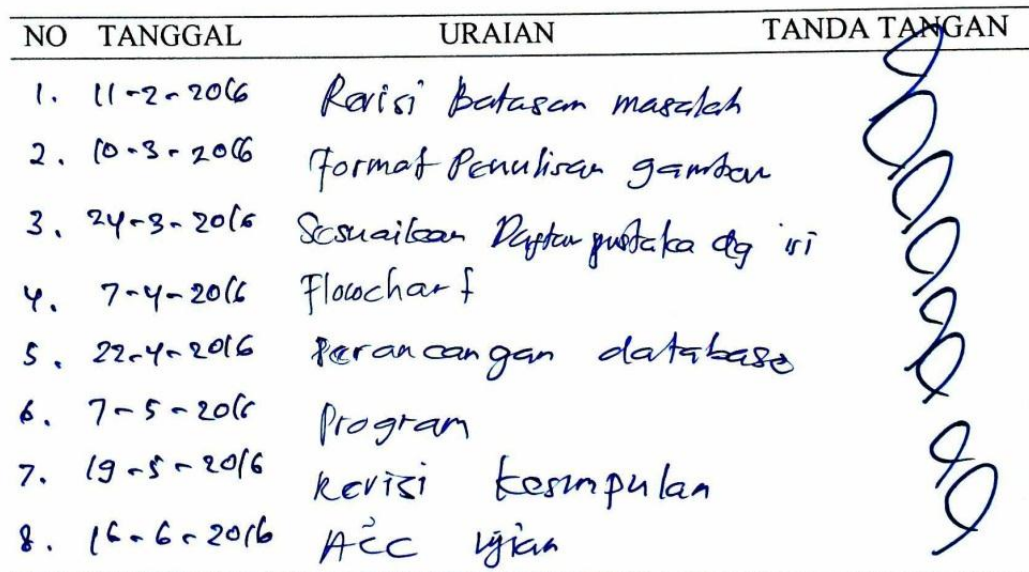 NO TANGGAL URAIAN TANDA TANGAN
1. 11-2-2016 Revisi Batasan masalah
2. 10-3-2016 Format Penulisan gambar
3. 24-3-2016 Sesuaikan Daftar pustaka dg isi
4. 7-4-2016 Flowchart
5. 22-4-2016 Perancangan database
6. 7-5-2016 Program
7. 19-5-2016 Revisi kesimpulan
8. 16-6-2016 Acc Ujian